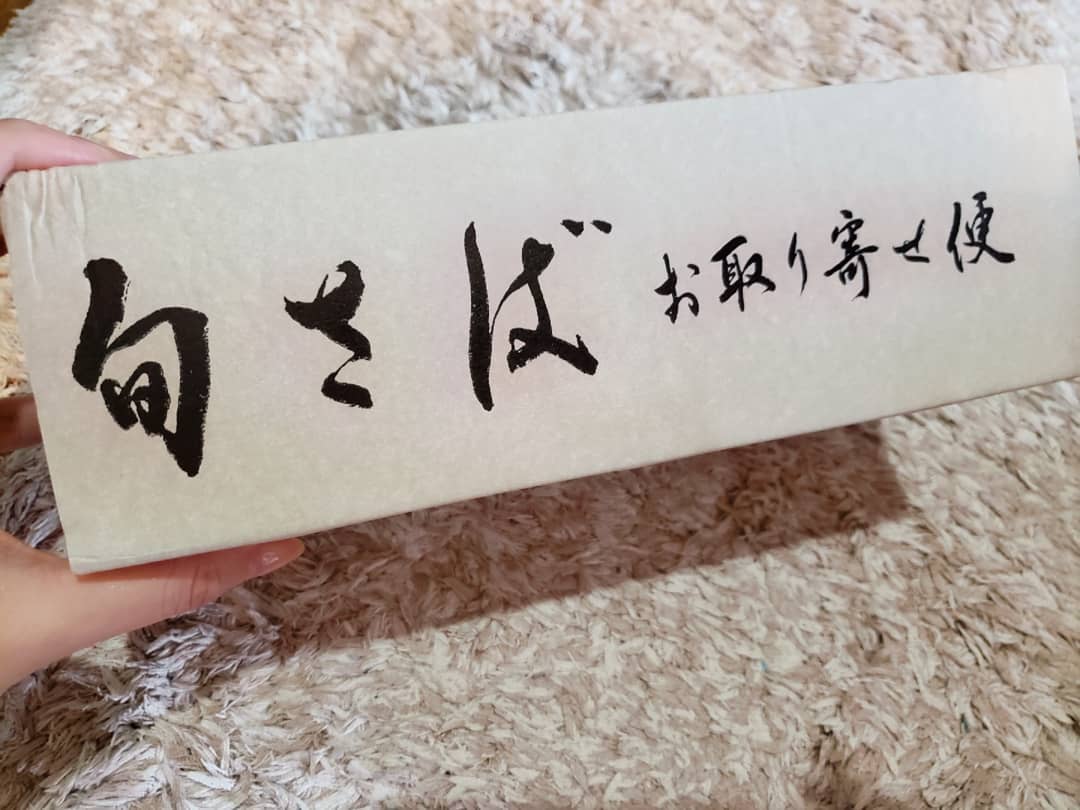 旬さば お取り寄せ便